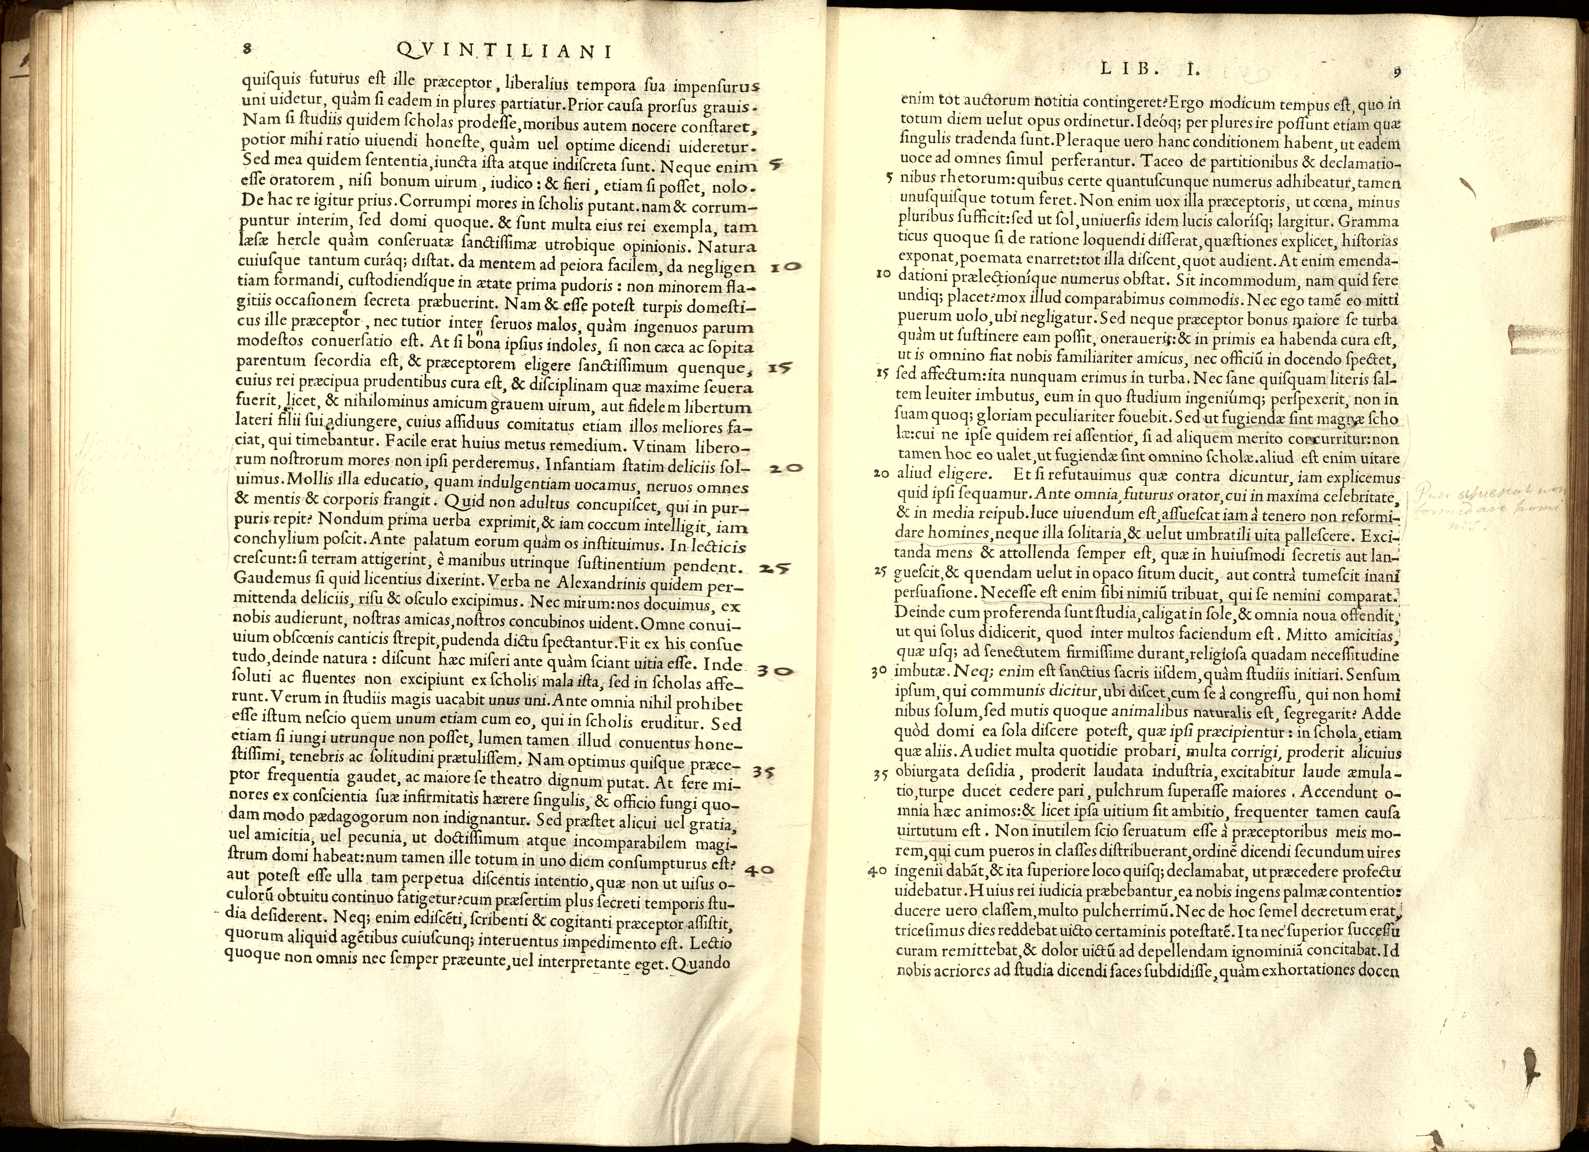 8 QVINTILIANI
quiſquis futurus eſt ille præceptor, liberalius tempora ſua impenſurus
uni uidetur, quàm ſi eadem in plures partiatur. Prior cauſa prorſus grauis.
Nam ſi ſtudiis quidem ſcholas prodeſſe, moribus autem nocere conſtaret,
potior mihi ratio uiuendi honeſte, quàm uel optime dicendi uideretur.
Sed mea quidem ſententia, iuncta iſta atque indiſcreta ſunt. Neque enim 5
eſſe oratorem, niſi bonum uirum, iudico: & fieri, etiam ſi poſſet, nolo.
De hac re igitur prius. Corrumpi mores in ſcholis putant. nam & corrum-
puntur interim, ſed domi quoque. & ſunt multa eius rei exempla, tam
læſæ hercle quàm conſeruatæ ſanctiſſimæ utrobique opinionis. Natura
cuiuſque tantum curáq; diſtat. da mentem ad peiora facilem, da negligen 10
tiam formandi, cuſtodiendíque in ætate prima pudoris: non minorem fla-
gitiis occaſionem ſecreta præbuerint. Nam & eſſe poteſt turpis domeſti-
cus ille præceptor, nec tutior inter ſeruos malos, quàm ingenuos parum
modeſtos conuerſatio eſt. At ſi bona ipſius indoles, ſi non cæca ac ſopita
parentum ſecordia eſt, & præceptorem eligere ſanctiſſimum quenque, 15
cuius rei præcipua prudentibus cura eſt, & diſciplinam quæ maxime ſeuera
fuerit, licet, & nihilominus amicum grauem uirum, aut fidelem libertum
lateri filii ſui adiungere, cuius aſſiduus comitatus etiam illos meliores fa-
ciat, qui timebantur. Facile erat huius metus remedium. Vtinam libero-
rum noſtrorum mores non ipſi perderemus. Infantiam ſtatim deliciis ſol- 20
uimus. Mollis illa educatio, quam indulgentiam uocamus, neruos omnes
& mentis & corporis frangit. Quid non adultus concupiſcet, qui in pur-
puris repit? Nondum prima uerba exprimit, & iam coccum intelligit, iam
conchylium poſcit. Ante palatum eorum quàm os inſtituimus. In lecticis
creſcunt: ſi terram attigerint, è manibus utrinque ſuſtinentium pendent. 25
Gaudemus ſi quid licentius dixerint. Verba ne Alexandrinis quidem per-
mittenda deliciis, riſu & oſculo excipimus. Nec mirum: nos docuimus, ex
nobis audierunt, noſtras amicas, noſtros concubinos uident. Omne conui-
uium obſcœnis canticis ſtrepit, pudenda dictu ſpectantur. Fit ex his conſue
tudo, deinde natura: diſcunt hæc miſeri ante quàm ſciant uitia eſſe. Inde 30
ſoluti ac fluentes non excipiunt ex ſcholis mala iſta, ſed in ſcholas affe-
runt. Verum in ſtudiis magis uacabit unus uni. Ante omnia nihil prohibet
eſſe iſtum neſcio quem unum etiam cum eo, qui in ſcholis eruditur. Sed
etiam ſi iungi utrunque non poſſet, lumen tamen illud conuentus hone-
ſtiſſimi, tenebris ac ſolitudini prætuliſſem. Nam optimus quiſque præce- 35
ptor frequentia gaudet, ac maiore ſe theatro dignum putat. At fere mi-
nores ex conſcientia ſuæ infirmitatis hærere ſingulis, & officio fungi quo-
dam modo pædagogorum non indignantur. Sed præſtet alicui uel gratia,
uel amicitia, uel pecunia, ut doctiſſimum atque incomparabilem magi-
ſtrum domi habeat: num tamen ille totum in uno diem conſumpturus eſt? 40
aut poteſt eſſe ulla tam perpetua diſcentis intentio, quæ non ut uiſus o-
culorū obtuitu continuo fatigetur? cum præſertim plus ſecreti temporis ſtu-
dia deſiderent. Neq; enim ediſcēti, ſcribenti & cogitanti præceptor aſſiſtit,
quorum aliquid agētibus cuiuſcunq; interuentus impedimento eſt. Lectio
quoque non omnis nec ſemper præeunte, uel interpretante eget. Quando
LIB. I. 9
enim tot auctorum notitia contingeret? Ergo modicum tempus eſt, quo in
totum diem uelut opus ordinetur. Ideóq; per plures ire poſſunt etiam quæ
ſingulis tradenda ſunt. Pleraque uero hanc conditionem habent, ut eadem
uoce ad omnes ſimul perferantur. Taceo de partitionibus & declamatio-
5 nibus rhetorum: quibus certe quantuſcunque numerus adhibeatur, tamen
unuſquiſque totum feret. Non enim uox illa præceptoris, ut cœna, minus
pluribus ſufficit: ſed ut ſol, uniuerſis idem lucis caloríſq; largitur. Gramma
ticus quoque ſi de ratione loquendi diſſerat, quæſtiones explicet, hiſtorias
exponat, poemata enarret: tot illa diſcent, quot audient. At enim emenda-
10 dationi prælectioníque numerus obſtat. Sit incommodum, nam quid fere
undiq; placet? mox illud comparabimus commodis. Nec ego tamē eo mitti
puerum uolo, ubi negligatur. Sed neque præceptor bonus maiore ſe turba
quàm ut ſuſtinere eam poſſit, onerauerit: & in primis ea habenda cura eſt,
ut is omnino fiat nobis familiariter amicus, nec officiū in docendo ſpectet,
15 ſed affectum: ita nunquam erimus in turba. Nec ſane quiſquam literis ſal-
tem leuiter imbutus, eum in quo ſtudium ingeniúmq; perſpexerit, non in
ſuam quoq; gloriam peculiariter fouebit. Sed ut fugiendæ ſint magnæ ſcho
læ: cui ne ipſe quidem rei aſſentior, ſi ad aliquem merito concurritur: non
tamen hoc eo ualet, ut fugiendæ ſint omnino ſcholæ. aliud eſt enim uitare
20 aliud eligere. Et ſi refutauimus quæ contra dicuntur, iam explicemus
quid ipſi ſequamur. Ante omnia futurus orator, cui in maxima celebritate,
& in media reipub. luce uiuendum eſt, aſſueſcat iam à tenero non reformi-
dare homines, neque illa ſolitaria, & uelut umbratili uita palleſcere. Exci-
tanda mens & attollenda ſemper eſt, quæ in huiuſmodi ſecretis aut lan-
25 gueſcit, & quendam uelut in opaco ſitum ducit, aut contrà tumeſcit inani
perſuaſione. Neceſſe eſt enim ſibi nimiū tribuat, qui ſe nemini comparat.
Deinde cum proferenda ſunt ſtudia, caligat in ſole, & omnia noua offendit,
ut qui ſolus didicerit, quod inter multos faciendum eſt. Mitto amicitias,
quæ uſq; ad ſenectutem firmiſſime durant, religioſa quadam neceſſitudine
30 imbutæ. Neq; enim eſt ſanctius ſacris iiſdem, quàm ſtudiis initiari. Senſum
ipſum, qui communis dicitur, ubi diſcet, cum ſe à congreſſu, qui non homi
nibus ſolum, ſed mutis quoque animalibus naturalis eſt, ſegregarit? Adde
quòd domi ea ſola diſcere poteſt, quæ ipſi præcipientur: in ſchola, etiam
quæ aliis. Audiet multa quotidie probari, multa corrigi, proderit alicuius
35 obiurgata deſidia, proderit laudata induſtria, excitabitur laude æmula-
tio, turpe ducet cedere pari, pulchrum ſuperaſſe maiores. Accendunt o-
mnia hæc animos: & licet ipſa uitium ſit ambitio, frequenter tamen cauſa
uirtutum eſt. Non inutilem ſcio ſeruatum eſſe à præceptoribus meis mo-
rem, qui cum pueros in claſſes diſtribuerant, ordinē dicendi ſecundum uires
40 ingenii dabāt, & ita ſuperiore loco quiſq; declamabat, ut præcedere profectu
uidebatur. Huius rei iudicia præbebantur, ea nobis ingens palmæ contentio:
ducere uero claſſem, multo pulcherrimū. Nec de hoc ſemel decretum erat,
triceſimus dies reddebat uicto certaminis poteſtatē. Ita nec ſuperior ſucceſſu
curam remittebat, & dolor uictū ad depellendam ignominiā concitabat. Id
nobis acriores ad ſtudia dicendi faces ſubdidiſſe, quàm exhortationes docen